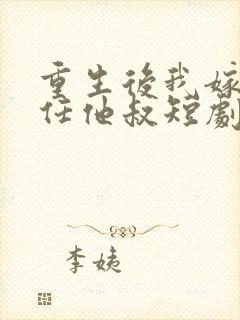 重生後我嫁
任他叔短劇
李姨